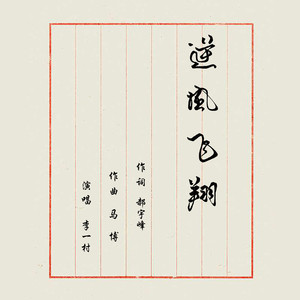 逆风飞翔
作词 郝宇峰
作曲 马博
演唱 李一村